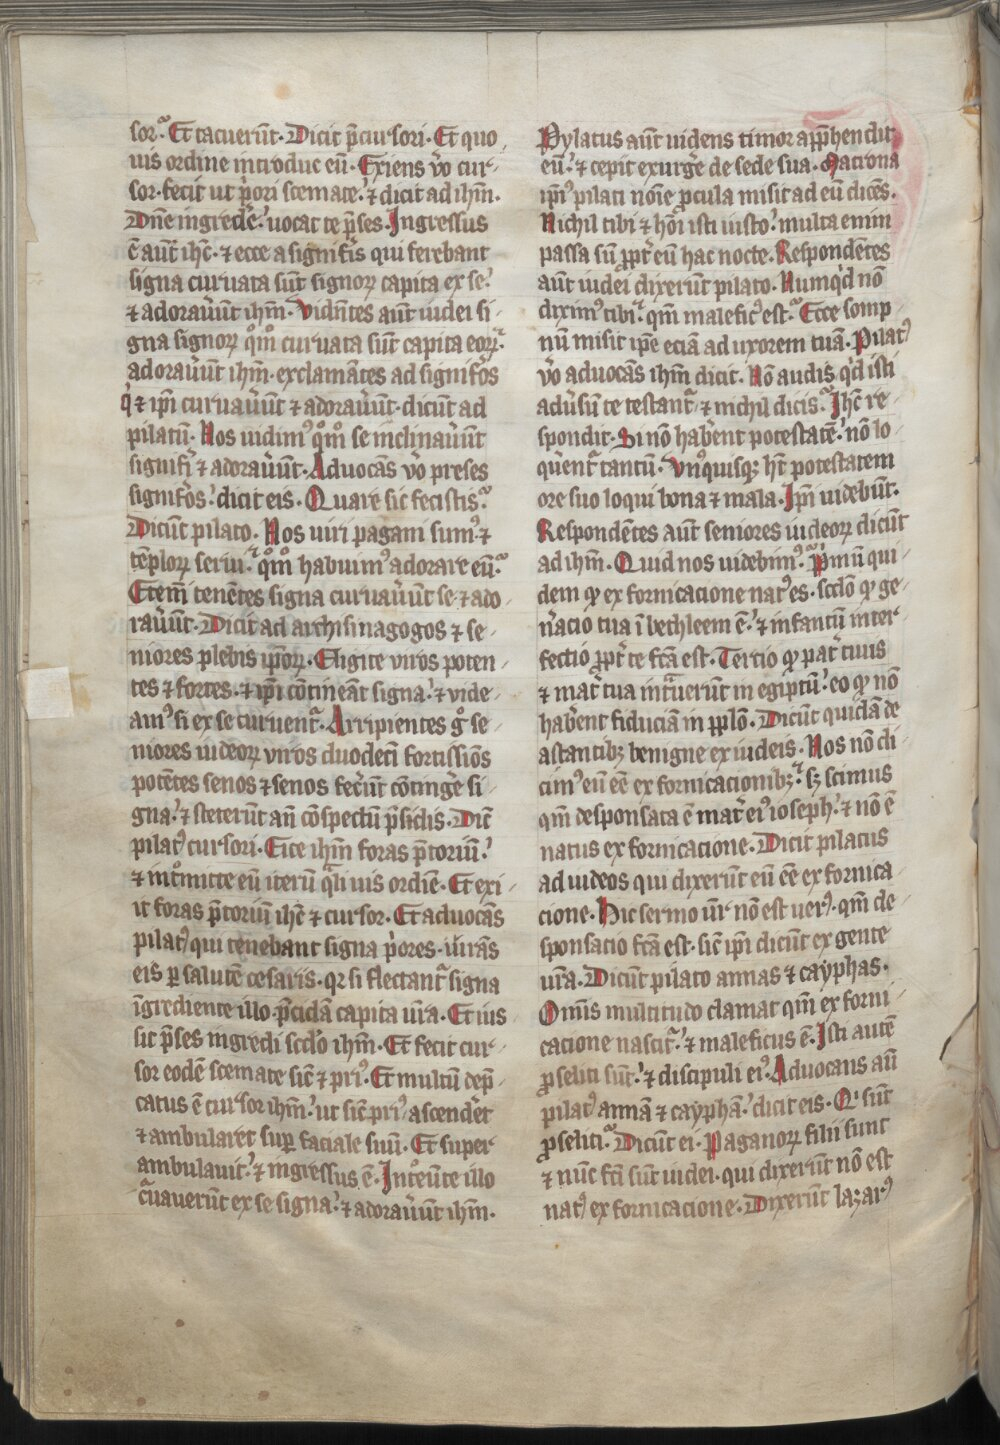 sor. Et tacuerūt. Dicit p̄cursori. Et quo
uis ordine introduc eū. Exiens v̊o cur
sor. fecit ut p͛ori scemate. ⁊ dicit ad ih̄m.
Dn̄e ingrede. uocat te p̄ses. Ingressus
ē aut̄ ih̄c. ⁊ ecce a signif͛is qui ferebant
signa curuata sūt signoꝝ capita ex se.
⁊ adorau͛ūt ih̄m. Vidn̄tes aūt iudei si
gna signoꝝ qm̊o curuata sūt capita eoꝝ.
adorau͛ūt ih̄m. exclamātes ad signif͛os
q͛ ⁊ ip̄i curuau͛ūt ⁊ adorau͛ūt. dicūt ad
pilatū. Nos uidimꝰ qm̊o se inclinau͛ūt
signif͛i ⁊ adorau͛ūt. Aduocās v̊o preses
signif͛os. dicit eis. Quare sic fecistis.
Dicūt pilato. Nos uiri pagani sumꝰ ⁊
tēploꝝ serui. qm̊o habuimꝰ adorare eū.
Etem̄ tenētes signa curuau͛ūt se ⁊ ado
rau͛ūt. Dicit ad archisinagogos ⁊ se
niores plebis ip̄oꝝ. Eligite viros poten
tes ⁊ fortes. ⁊ ip̄i cōtineāt signa. ⁊ vide
amꝰ si ex se curuent᷑. Arripientes g̊ se
niores iudeoꝝ viros duodecī fortissīos
potētes senos ⁊ senos fec͛ūt cōting͛e si
gna. ⁊ steterūt an̄ cōspectū p̄sidis. Dic̄
pilatꝰ cursori. Eice ih̄m foras p̄toriū.
⁊ int͛mitte eū iterū q̄liuis ordiē. Et exi
it foras p̄toriū ih̄c ⁊ cursor. Et aduocās
pilatꝰ qui tenebant signa p͛ores. iurās
eis ꝑ salutē cesaris. qꝛ si flectant᷑ signa
īgrediente illo. p̄cidā capita ur̄a. Et ius
sit p̄ses ingredi scd̊o ih̄m. Et fecit cur
sor eodē scemate sic̄ ⁊ priꝰ. Et multū dep̄
catus ē cursor ih̄m. ut sic̄ priꝰ ascend͛et
⁊ ambularet suꝑ faciale suū. Et super
ambulauit. ⁊ ingressus ē. Introeūte illo
c͛uauerūt ex se signa. ⁊ adorau͛ūt ih̄m.
Pylatus aūt uidens timor app̄hendit
eū. ⁊ cepit exurg͛e de sede sua. Matrona
ip̄iꝰ pilati noīe ꝓcula misit ad eū dicēs.
Nichil tibi ⁊ hoī isti iusto. multa enim
passa sū ꝓpt͛ eū hac nocte. Respondētes
aūt iudei dixerūt pilato. Numq͛d nō
diximꝰ tibi. qm̄ maleficꝰ est. Ecce somp
nū misit ip̄e eciā ad uxorem tuā. Pilatꝰ
v̊o aduocās ih̄m dicit. Nō audis q͛d isti
adu͛sū te testant᷑. ⁊ nichil dicis. Ih̄c re
spondit. Si nō hab͛ent potestatē. nō lo
qu͛ent᷑ tantū. Vnꝰquisqꝫ h̄t potestatem
ore suo loqui bona ⁊ mala. Ip̄i uidebūt.
Respondētes aūt seniores iudeoꝝ dicūt
ad ih̄m. Quid nos uidebimꝰ. P͛mū qui
dem qꝫ ex fornicacione natꝰ es. scd̄o qꝫ ge
n͛acio tua ī bechleem ē. ⁊ infantū inter
fectio ꝓpt͛ te fc̄a est. Tertio qꝫ pat͛ tuus
⁊ mat͛ tua int͛uerūt in egiptū. eo qꝫ nō
hab͛ent fiduciā in pp̄lo. Dicūt quidā de
astantibꝫ benigne ex iudeis. Nos nō di
cimꝰ eū eē ex fornicacionibꝫ. sꝫ scimus
qm̄ desponsata ē mat͛ eiꝰ ioseph. ⁊ nō ē
natus ex fornicacione. Dicit pilatus
ad iudeos qui dixerūt eū eē ex fornica
cione. Hic sermo ur̄ nō est uerꝰ. qm̄ de
sponsacio fc̄a est. sic̄ ip̄i dicūt ex gente
ur̄a. Dicūt pilato annas ⁊ cayphas.
Om̄is multitudo clamat qm̄ ex forni
cacione nascit᷑. ⁊ maleficus ē. Isti autē
ꝓseliti sūt. ⁊ discipuli eiꝰ. Aduocans aū
pilatꝰ annā ⁊ cayphā. dicit eis. Q͛ sūt
ꝓseliti. Dicūt ei. Paganoꝝ filii sunt
⁊ nūc fc̄i sūt iudei. qui dixerūt nō est
natꝰ ex fornicacione. Dixerūt lazarꝰ